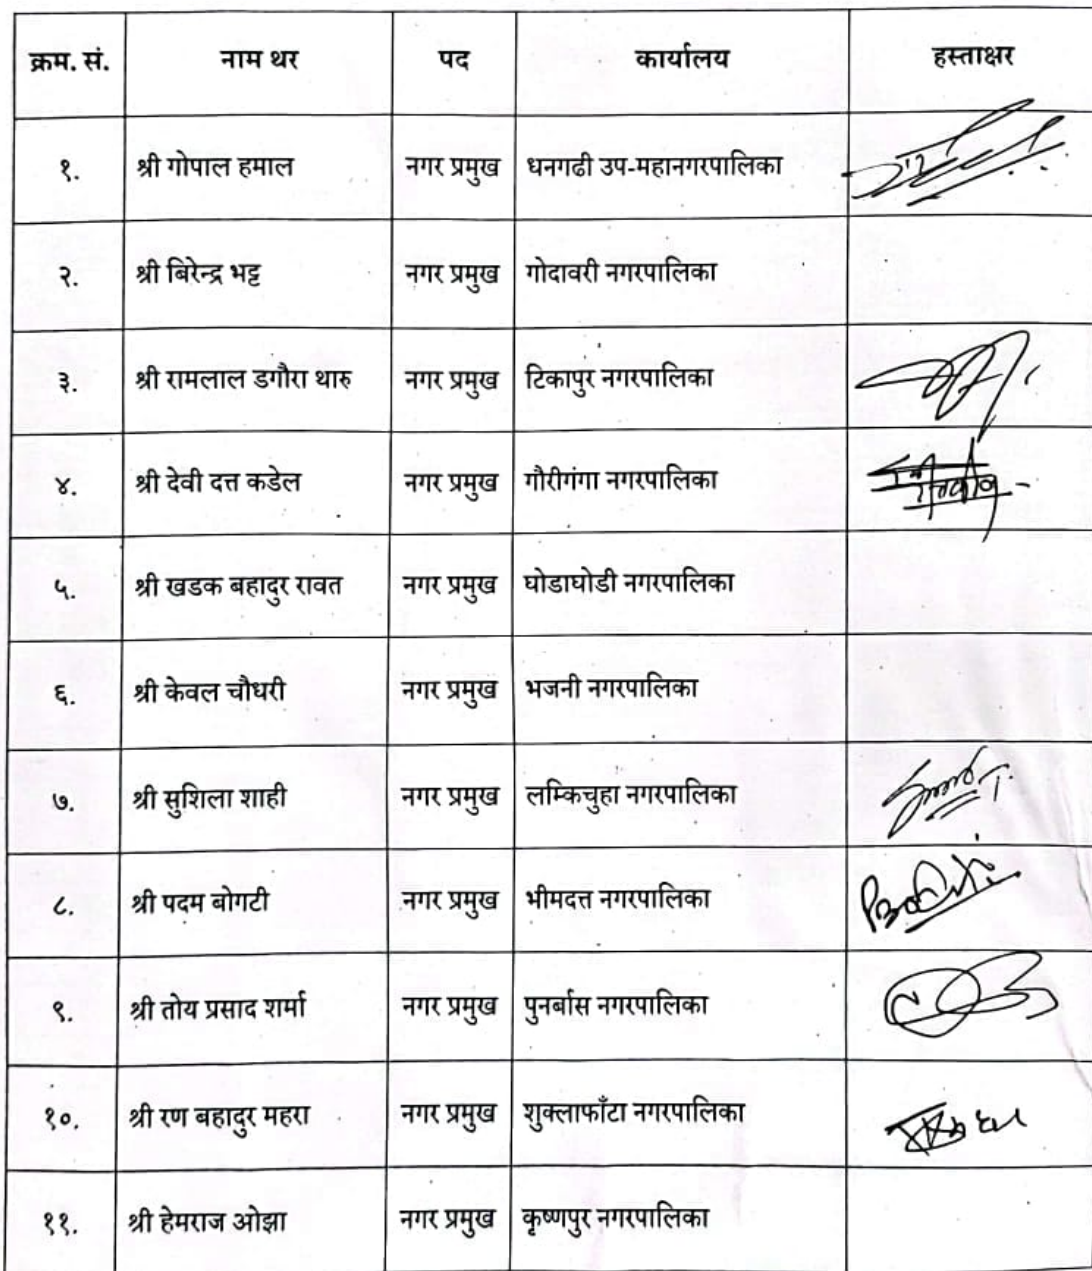 क्रम. सं. नाम थर पद कार्यालय हस्ताक्षर
१. श्री गोपाल हमाल नगर प्रमुख धनगढी उप-महानगरपालिका
२. श्री बिरेन्द्र भट्ट नगर प्रमुख गोदावरी नगरपालिका
३. श्री रामलाल डगौरा थारु नगर प्रमुख टिकापुर नगरपालिका
४. श्री देवी दत्त कडेल नगर प्रमुख गौरीगंगा नगरपालिका
५. श्री खडक बहादुर रावत नगर प्रमुख घोडाघोडी नगरपालिका
६. श्री केवल चौधरी नगर प्रमुख भजनी नगरपालिका
७. श्री सुशिला शाही नगर प्रमुख लम्किचुहा नगरपालिका
८. श्री पदम बोगटी नगर प्रमुख भीमदत्त नगरपालिका
९. श्री तोय प्रसाद शर्मा नगर प्रमुख पुनर्बास नगरपालिका
१०. श्री रण बहादुर महरा नगर प्रमुख शुक्लाफाँटा नगरपालिका
११. श्री हेमराज ओझा नगर प्रमुख कृष्णपुर नगरपालिका